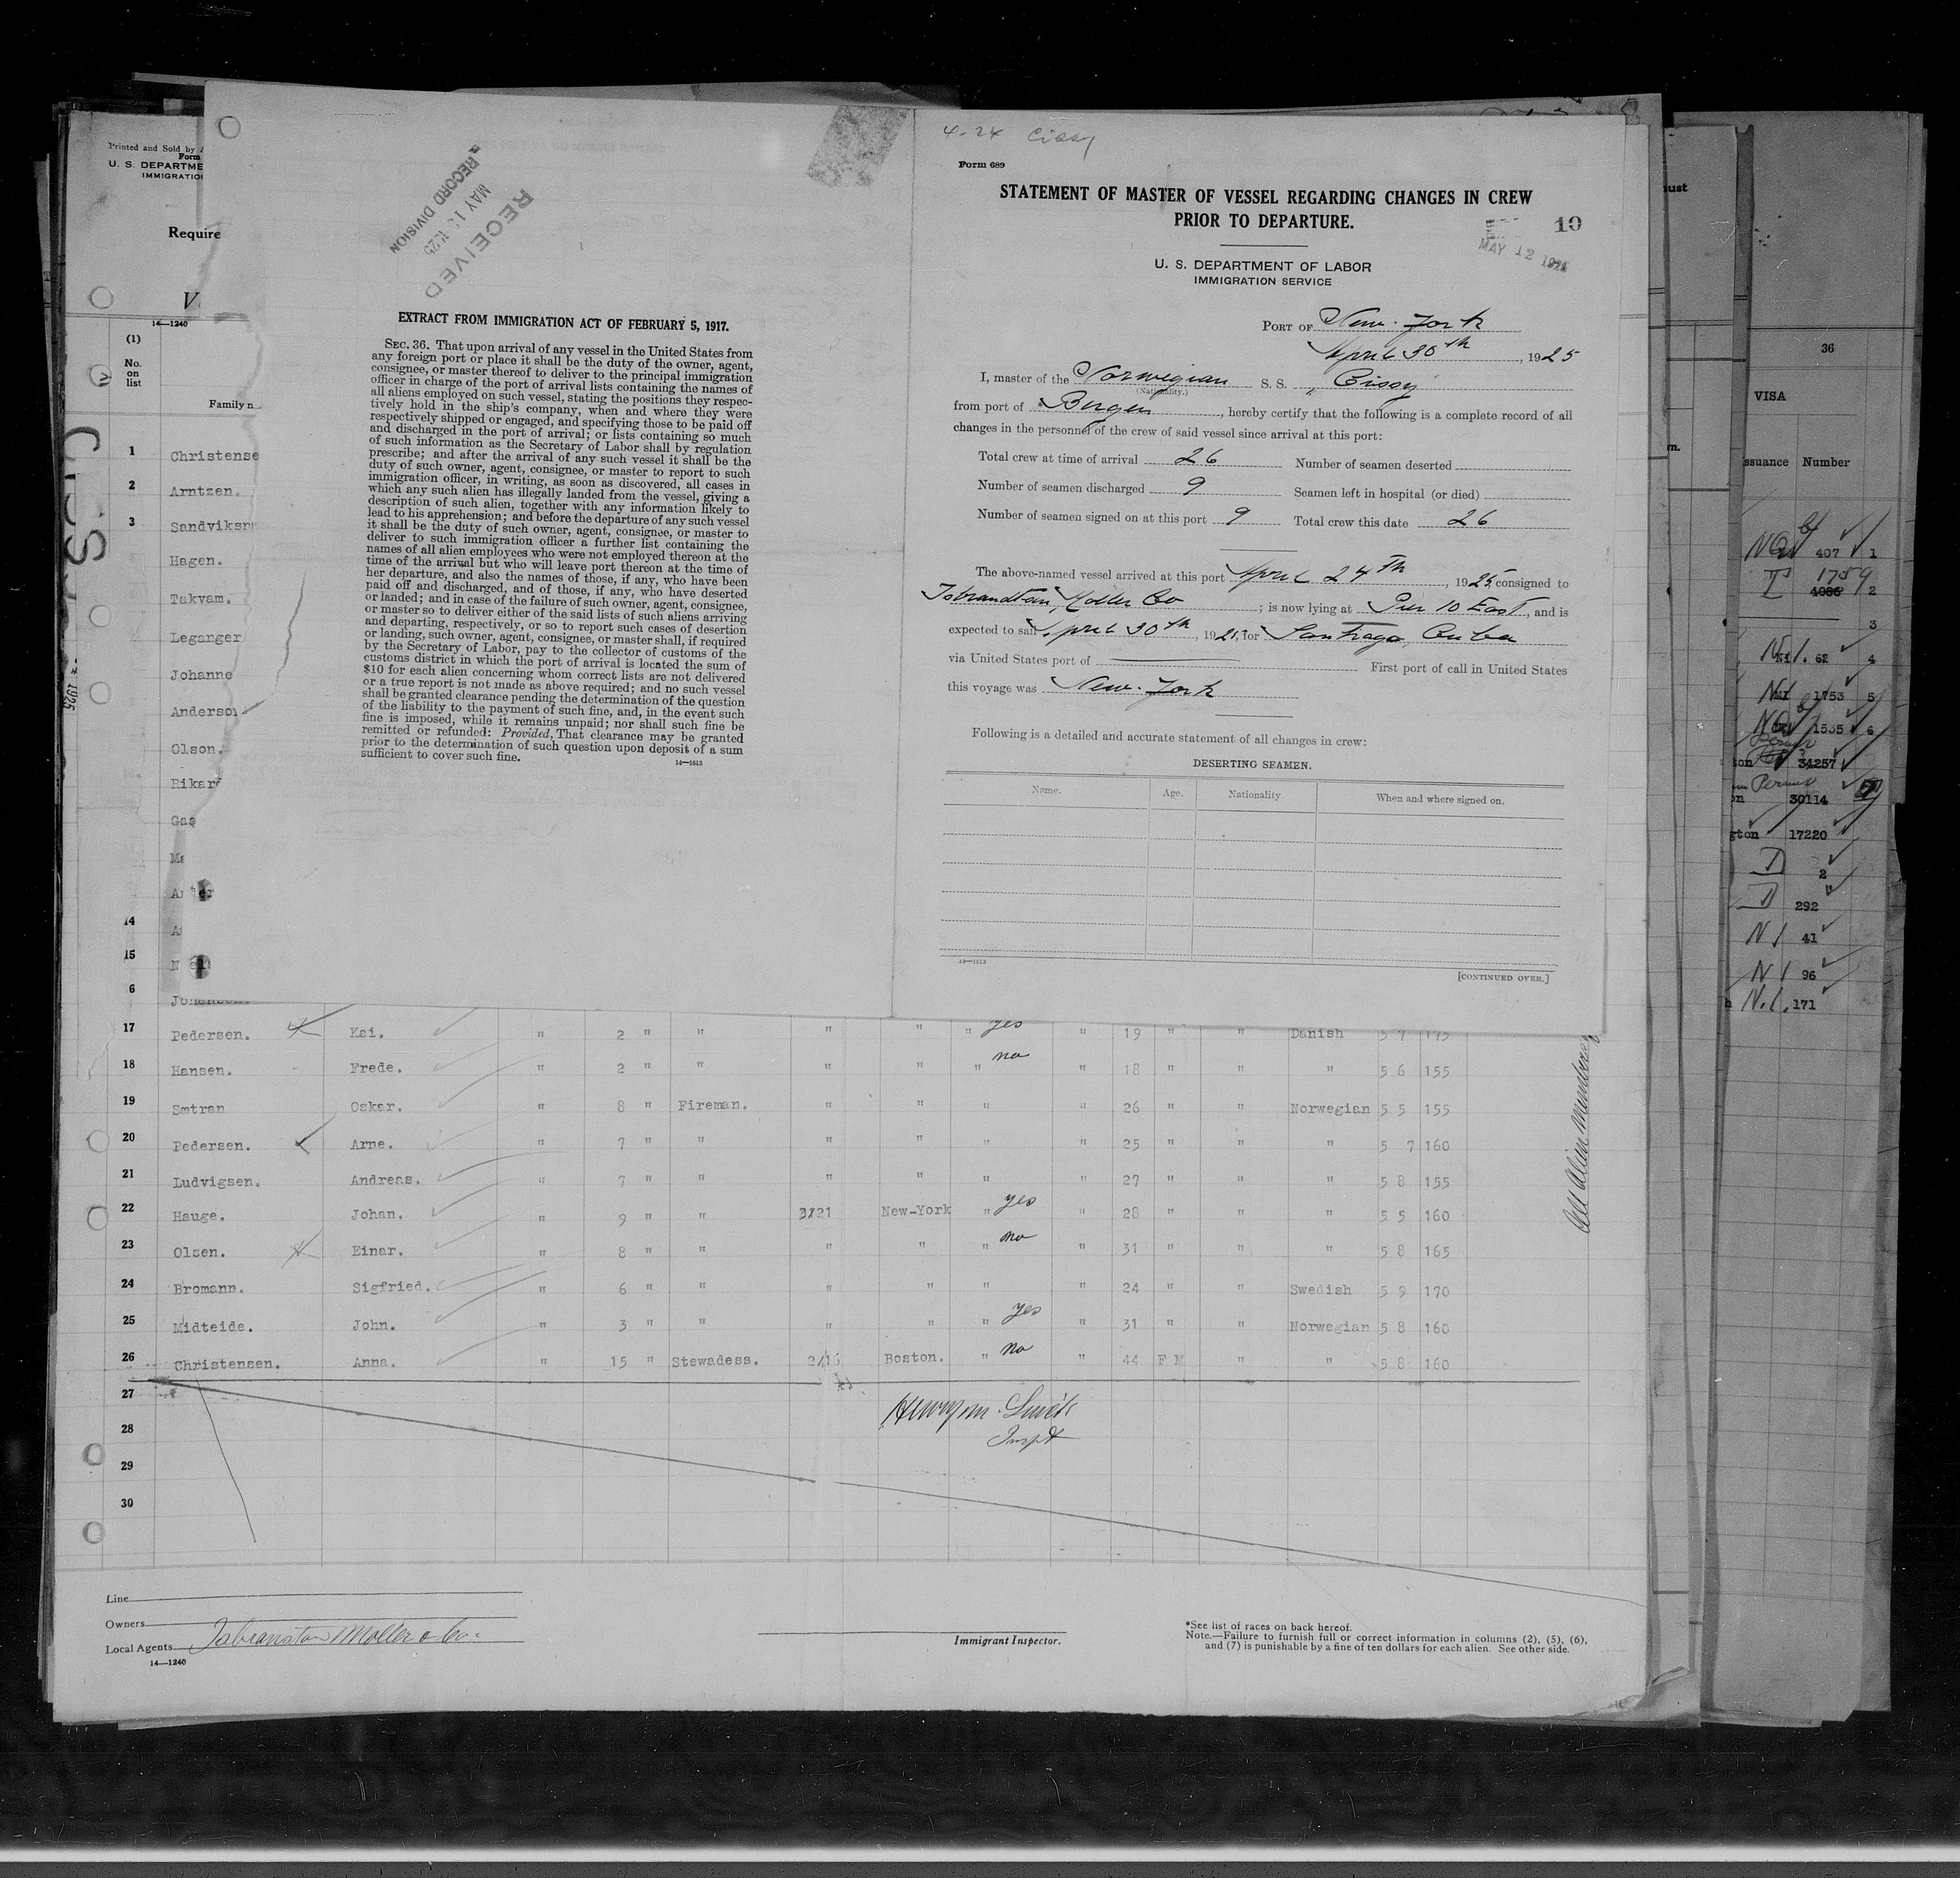 Printed and Sold by
Form
U. S. DEPARTME
IMMIGRATIO
Require
V
14—1240
(1)
No.
on
list
Family n
1 Christense
2 Arntzen.
3 Sandviksr
Hagen.
Takvam.
Leganger
Johanne
Anderso
Olson.
Rikar
Gas
14
15
6
RECEIVED
MAY 1 1925
RECORD DIVISION
EXTRACT FROM IMMIGRATION ACT OF FEBRUARY 5, 1917.
SEC. 36. That upon arrival of any vessel in the United States from
any foreign port or place it shall be the duty of the owner, agent,
consignee, or master thereof to deliver to the principal immigration
officer in charge of the port of arrival lists containing the names of
all aliens employed on such vessel, stating the positions they respec-
tively hold in the ship's company, when and where they were
respectively shipped or engaged, and specifying those to be paid off
and discharged in the port of arrival; or lists containing so much
of such information as the Secretary of Labor shall by regulation
prescribe; and after the arrival of any such vessel it shall be the
duty of such owner, agent, consignee, or master to report to such
immigration officer, in writing, as soon as discovered, all cases in
which any such alien has illegally landed from the vessel, giving a
description of such alien, together with any information likely to
lead to his apprehension; and before the departure of any such vessel
it shall be the duty of such owner, agent, consignee, or master to
deliver to such immigration officer a further list containing the
names of all alien employees who were not employed thereon at the
time of the arrival but who will leave port thereon at the time of
her departure, and also the names of those, if any, who have been
paid off and discharged, and of those, if any, who have deserted
or landed; and in case of the failure of such owner, agent, consignee,
or master so to deliver either of the said lists of such aliens arriving
and departing, respectively, or so to report such cases of desertion
or landing, such owner, agent, consignee, or master shall, if required
by the Secretary of Labor, pay to the collector of customs of the
customs district in which the port of arrival is located the sum of
$10 for each alien concerning whom correct lists are not delivered
or a true report is not made as above required; and no such vessel
shall be granted clearance pending the determination of the question
of the liability to the payment of such fine, and, in the event such
fine is imposed, while it remains unpaid; nor shall such fine be
remitted or refunded: Provided, That clearance may be granted
prior to the determination of such question upon deposit of a sum
sufficient to cover such fine.
14—1613
4-24 Cissy
Form 689
STATEMENT OF MASTER OF VESSEL REGARDING CHANGES IN CREW
PRIOR TO DEPARTURE.
10
MAY 12 1925
U. S. DEPARTMENT OF LABOR
IMMIGRATION SERVICE
PORT OF New-York
April 30th, 1925
I, master of the Norwegian S. S. "Cissy
(Nationality.)
from port of Bergen, hereby certify that the following is a complete record of all
changes in the personnel of the crew of said vessel since arrival at this port:
Total crew at time of arrival 26 Number of seamen deserted
Number of seamen discharged 9 Seamen left in hospital (or died)
Number of seamen signed on at this port 9 Total crew this date 26
The above-named vessel arrived at this port April 24th, 1925 consigned to
Isbrandtsen, Moller Co; is now lying at Pier 10 East, and is
expected to sail April 30th, 1925, for Santiago, Cuba
via United States port of First port of call in United States
this voyage was New-York
Following is a detailed and accurate statement of all changes in crew:
DESERTING SEAMEN.
Name. Age. Nationality. When and where signed on.
14—1613
[CONTINUED OVER.]
17 Pedersen. Kai. " 2 " " " " " yes " 19 " " Danish 5 7 175
18 Hansen. Frede. " 2 " " " " " no " 18 " " " 5 6 155
19 Smtran Oskar. " 8 " Fireman. " " " " 26 " " Norwegian 5 5 155
20 Pedersen. Arne. " 7 " " " " " " 25 " " " 5 7 160
21 Ludvigsen. Andreas. " 7 " " " " " " 27 " " " 5 8 155
22 Hauge. Johan. " 9 " " 3/21 New-York " yes " 28 " " " 5 5 160
23 Olsen. Einar. " 8 " " " " " no " 31 " " " 5 8 165
24 Bromann. Sigfried. " 6 " " " " " " 24 " " Swedish 5 9 170
25 Midteide. John. " 3 " " " " " yes " 31 " " Norwegian 5 8 160
26 Christensen. Anna. " 15 " Stewadess. 2/16 Boston. " no " 44 F M " " 5 8 160
27
28
29
30
Henry M. Smith
Inspt
All Alien Members
Line
Owners
Local Agents Isbranstan Moller & Co.
14—1240
Immigrant Inspector.
*See list of races on back hereof.
Note.—Failure to furnish full or correct information in columns (2), (5), (6),
and (7) is punishable by a fine of ten dollars for each alien. See other side.
36
VISA
ssuance Number
407 1
1759
4086 2
3
N.I. 62 4
1753 5
1535 6
34257
Permit
30114
gton 17220
2
292
N I 41
N I 96
N.I. 171